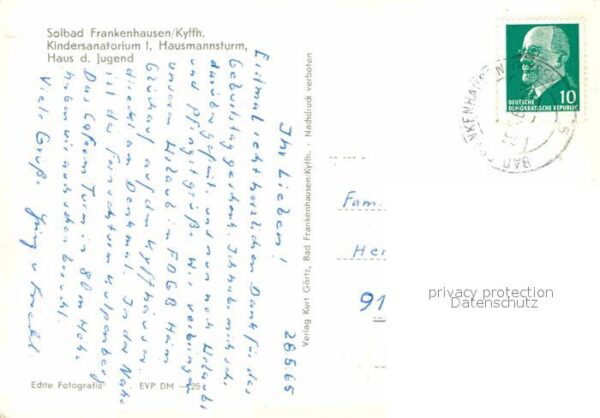 Solbad Frankenhausen/Kyffh.
Kindersanatorium I, Hausmannsturm,
Haus d. Jugend
28.5.65
Ihr Lieben!
Erstmal recht herzlichen Dank für das
Geburtstagsgeschenk. Ich habe mich sehr
darüber gefreut, und nun noch Urlaubs
und Pfingstgrüße. Wir verbringen
unseren Urlaub im FDGB Heim
Glückauf auf dem Kyffhäuser
direkt am Denkmal. In der Nähe
ist der Fernsehturm Kulpenberg
Das Cafe am Turm in 80 m Höhe
haben wir auch schon besucht.
Viele Grüße.
Echte Fotografie EVP DM —.25
Verlag Kurt Görtz, Bad Frankenhausen/Kyffh. - Nachdruck verboten
DEUTSCHE
DEMOKRATISCHE REPUBLIK
10
BAD FRANKENHAUSEN
Fam.
Her
91
privacy protection
Datenschutz